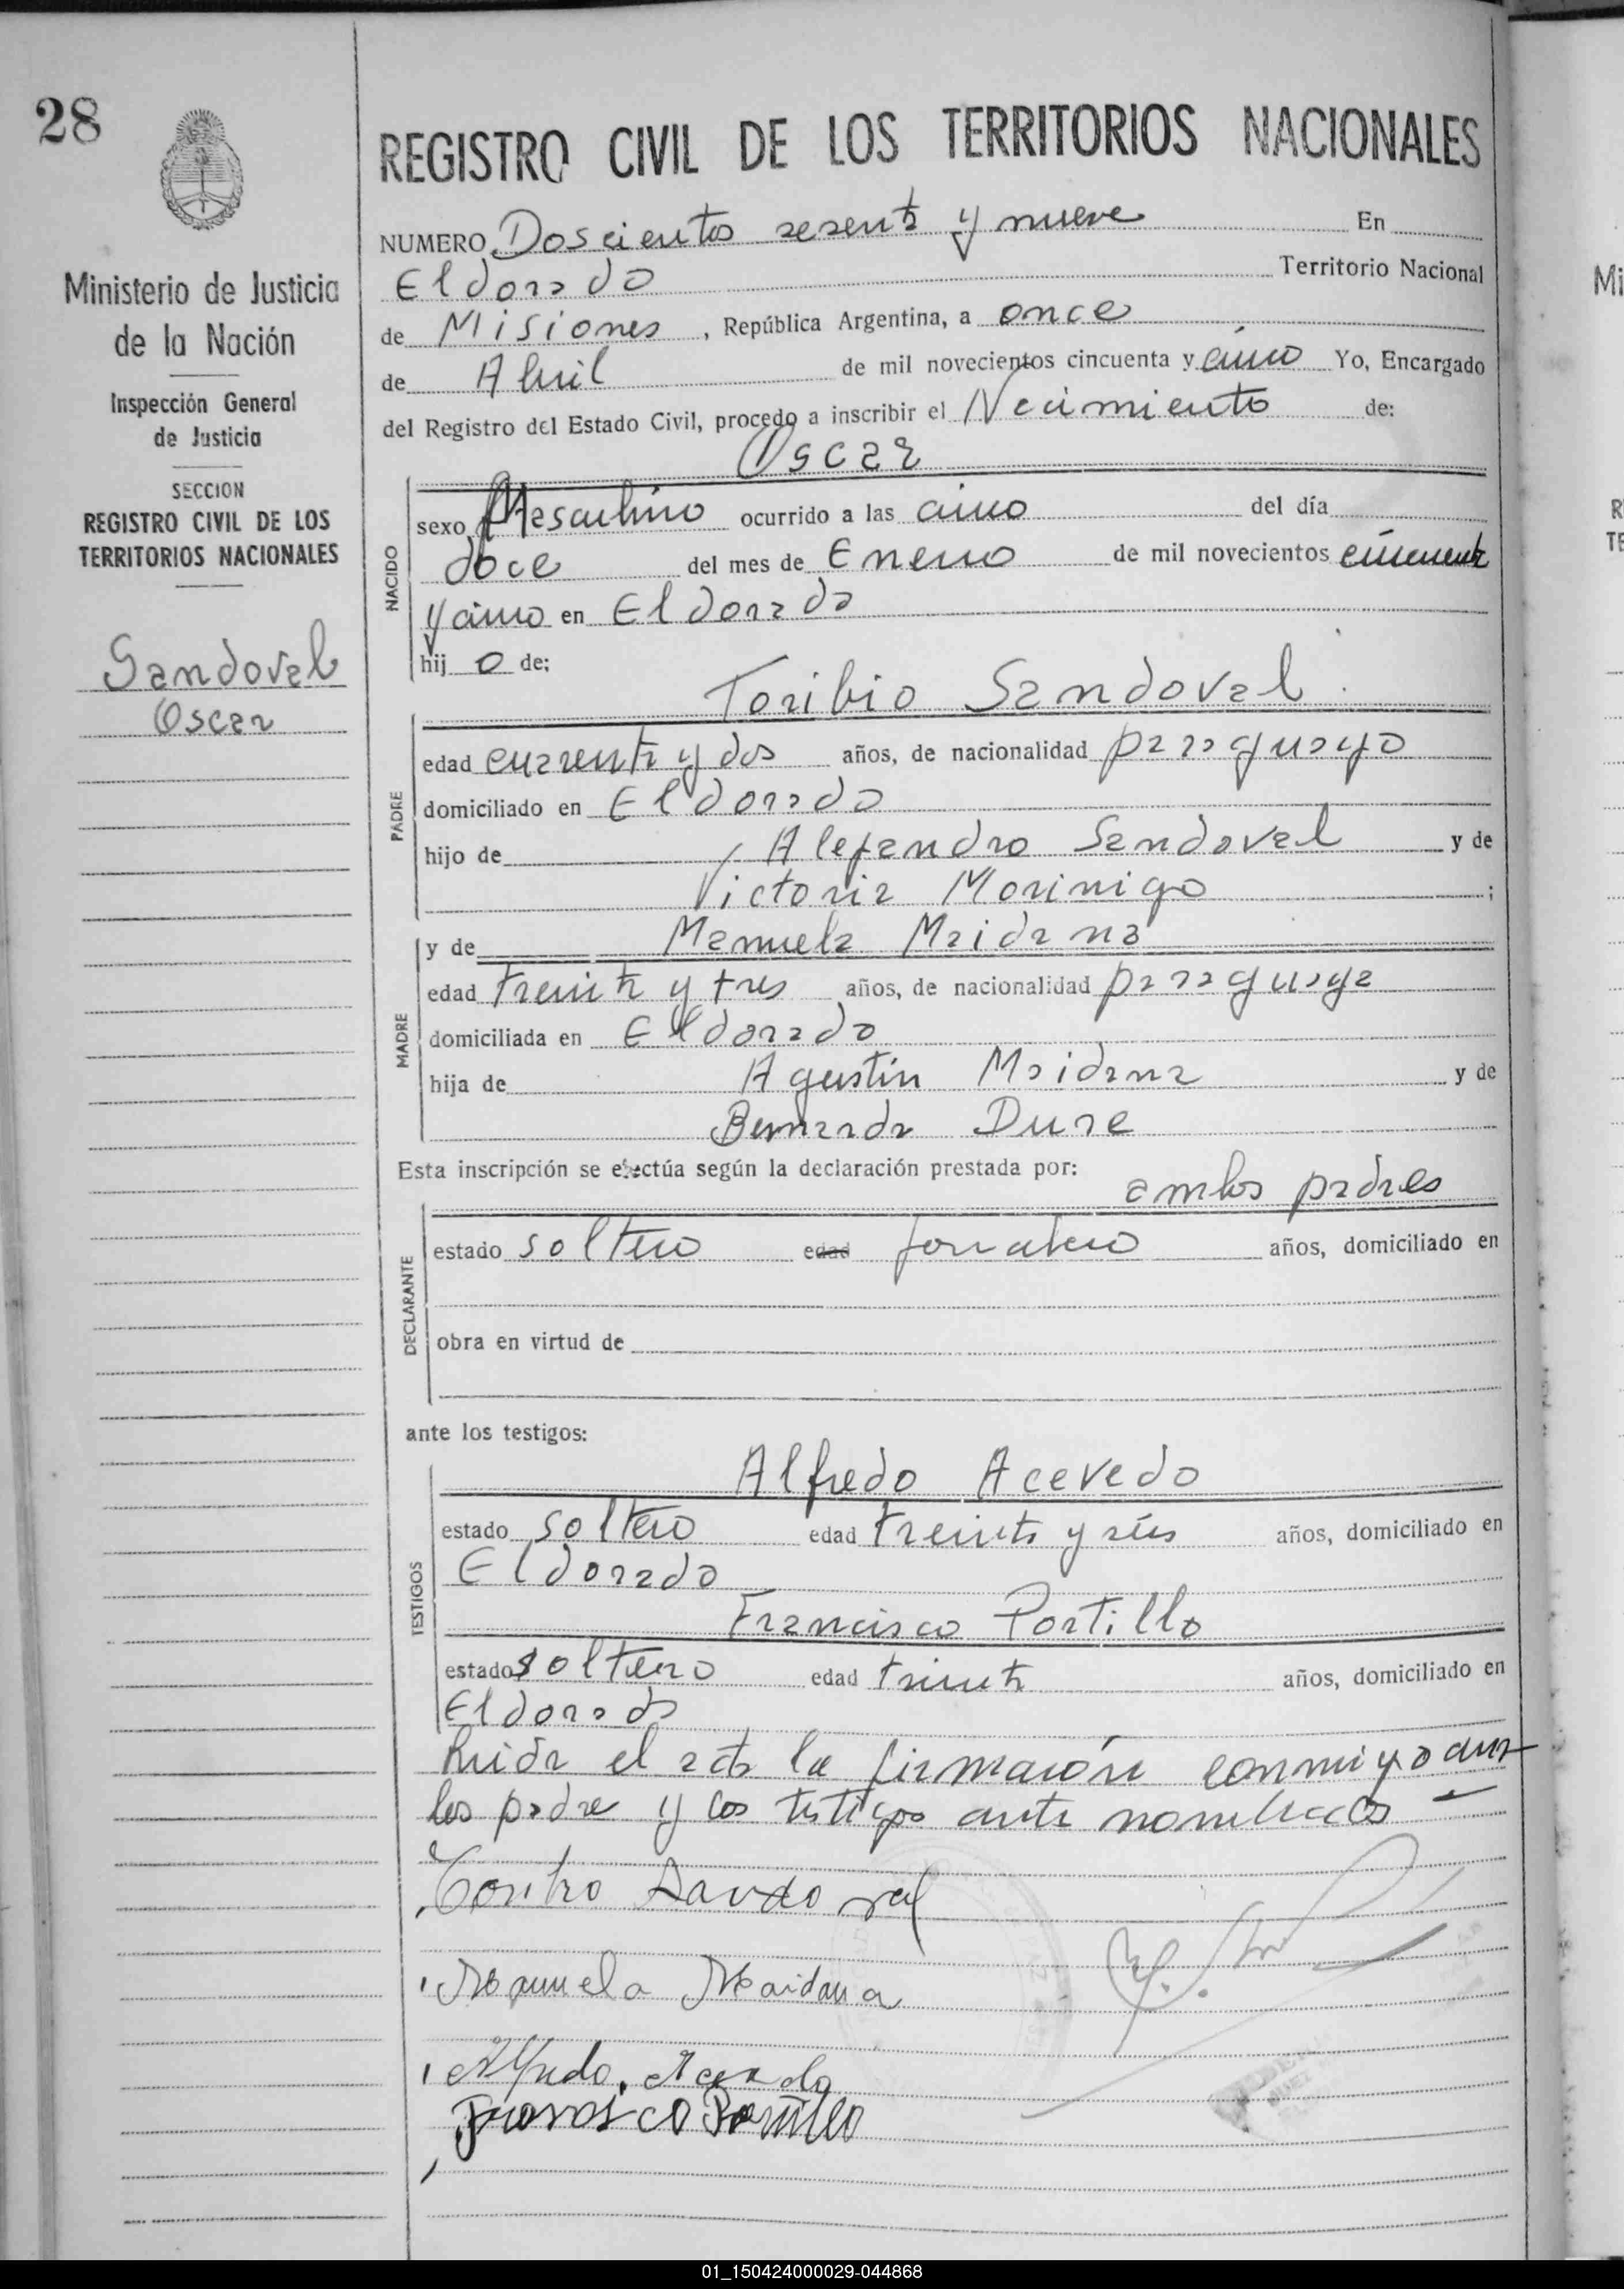 28
REGISTRO CIVIL DE LOS TERRITORIOS NACIONALES
Ministerio de Justicia
de la Nación
Inspección General
de Justicia
SECCION
REGISTRO CIVIL DE LOS
TERRITORIOS NACIONALES
Sandoval
Oscar
NUMERO Doscientos sesenta y nueve En
Eldorado Territorio Nacional
de Misiones, República Argentina, a once
de Abril de mil novecientos cincuenta y cinco Yo, Encargado
del Registro del Estado Civil, procedo a inscribir el Nacimiento de:
Oscar
NACIDO
sexo Masculino ocurrido a las cinco del día
doce del mes de Enero de mil novecientos cincuenta
y cinco en Eldorado
hij o de:
Toribio Sandoval
PADRE
edad cuarenta y dos años, de nacionalidad paraguayo
domiciliado en Eldorado
hijo de Alejandro Sandoval y de
Victoria Morinigo ;
y de Manuela Maidana
MADRE
edad treinta y tres años, de nacionalidad paraguaya
domiciliada en Eldorado
hija de Agustin Maidana y de
Bernarda Dure
Esta inscripción se efectúa según la declaración prestada por:
ambos padres
DECLARANTE
estado soltero edad jornalero años, domiciliado en
obra en virtud de
ante los testigos:
Alfredo Acevedo
TESTIGOS
estado soltero edad treinta y seis años, domiciliado en
Eldorado
Francisco Portillo
estado soltero edad treinta años, domiciliado en
Eldorado
Leida el acta la firmaron conmigo
los padre y los testigos ante nombrados
Toribio Sandoval
Manuela Maidana
Alfredo Acevedo
Francisco Portillo
01_150424000029-044868